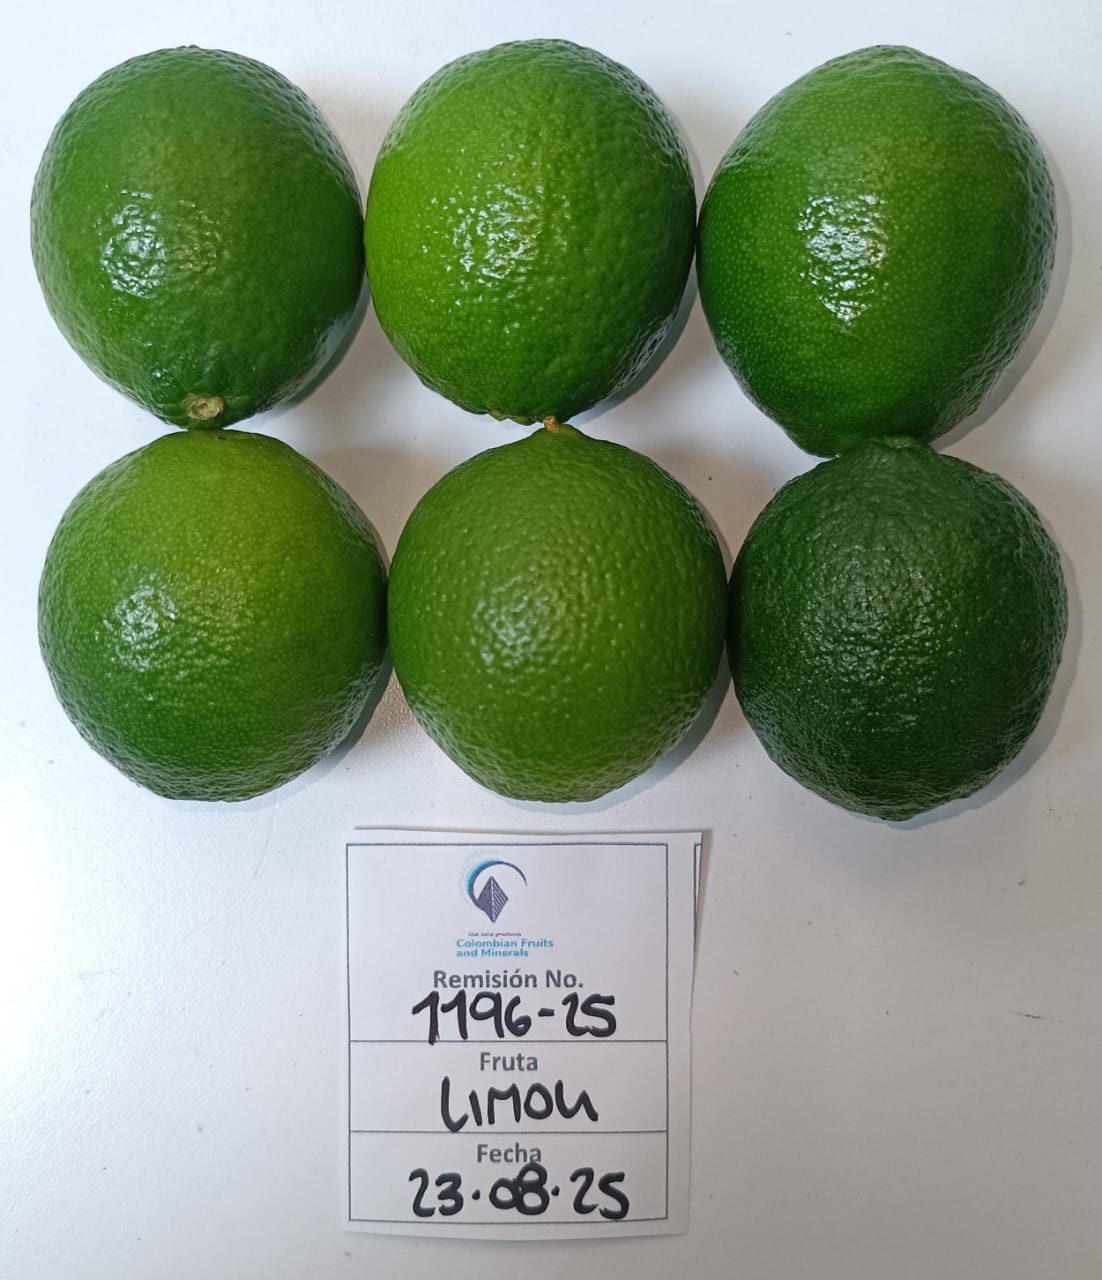 Our land products
Colombian Fruits
and Minerals
Remisión No.
1196-25
Fruta
LIMON
Fecha
23.08.25